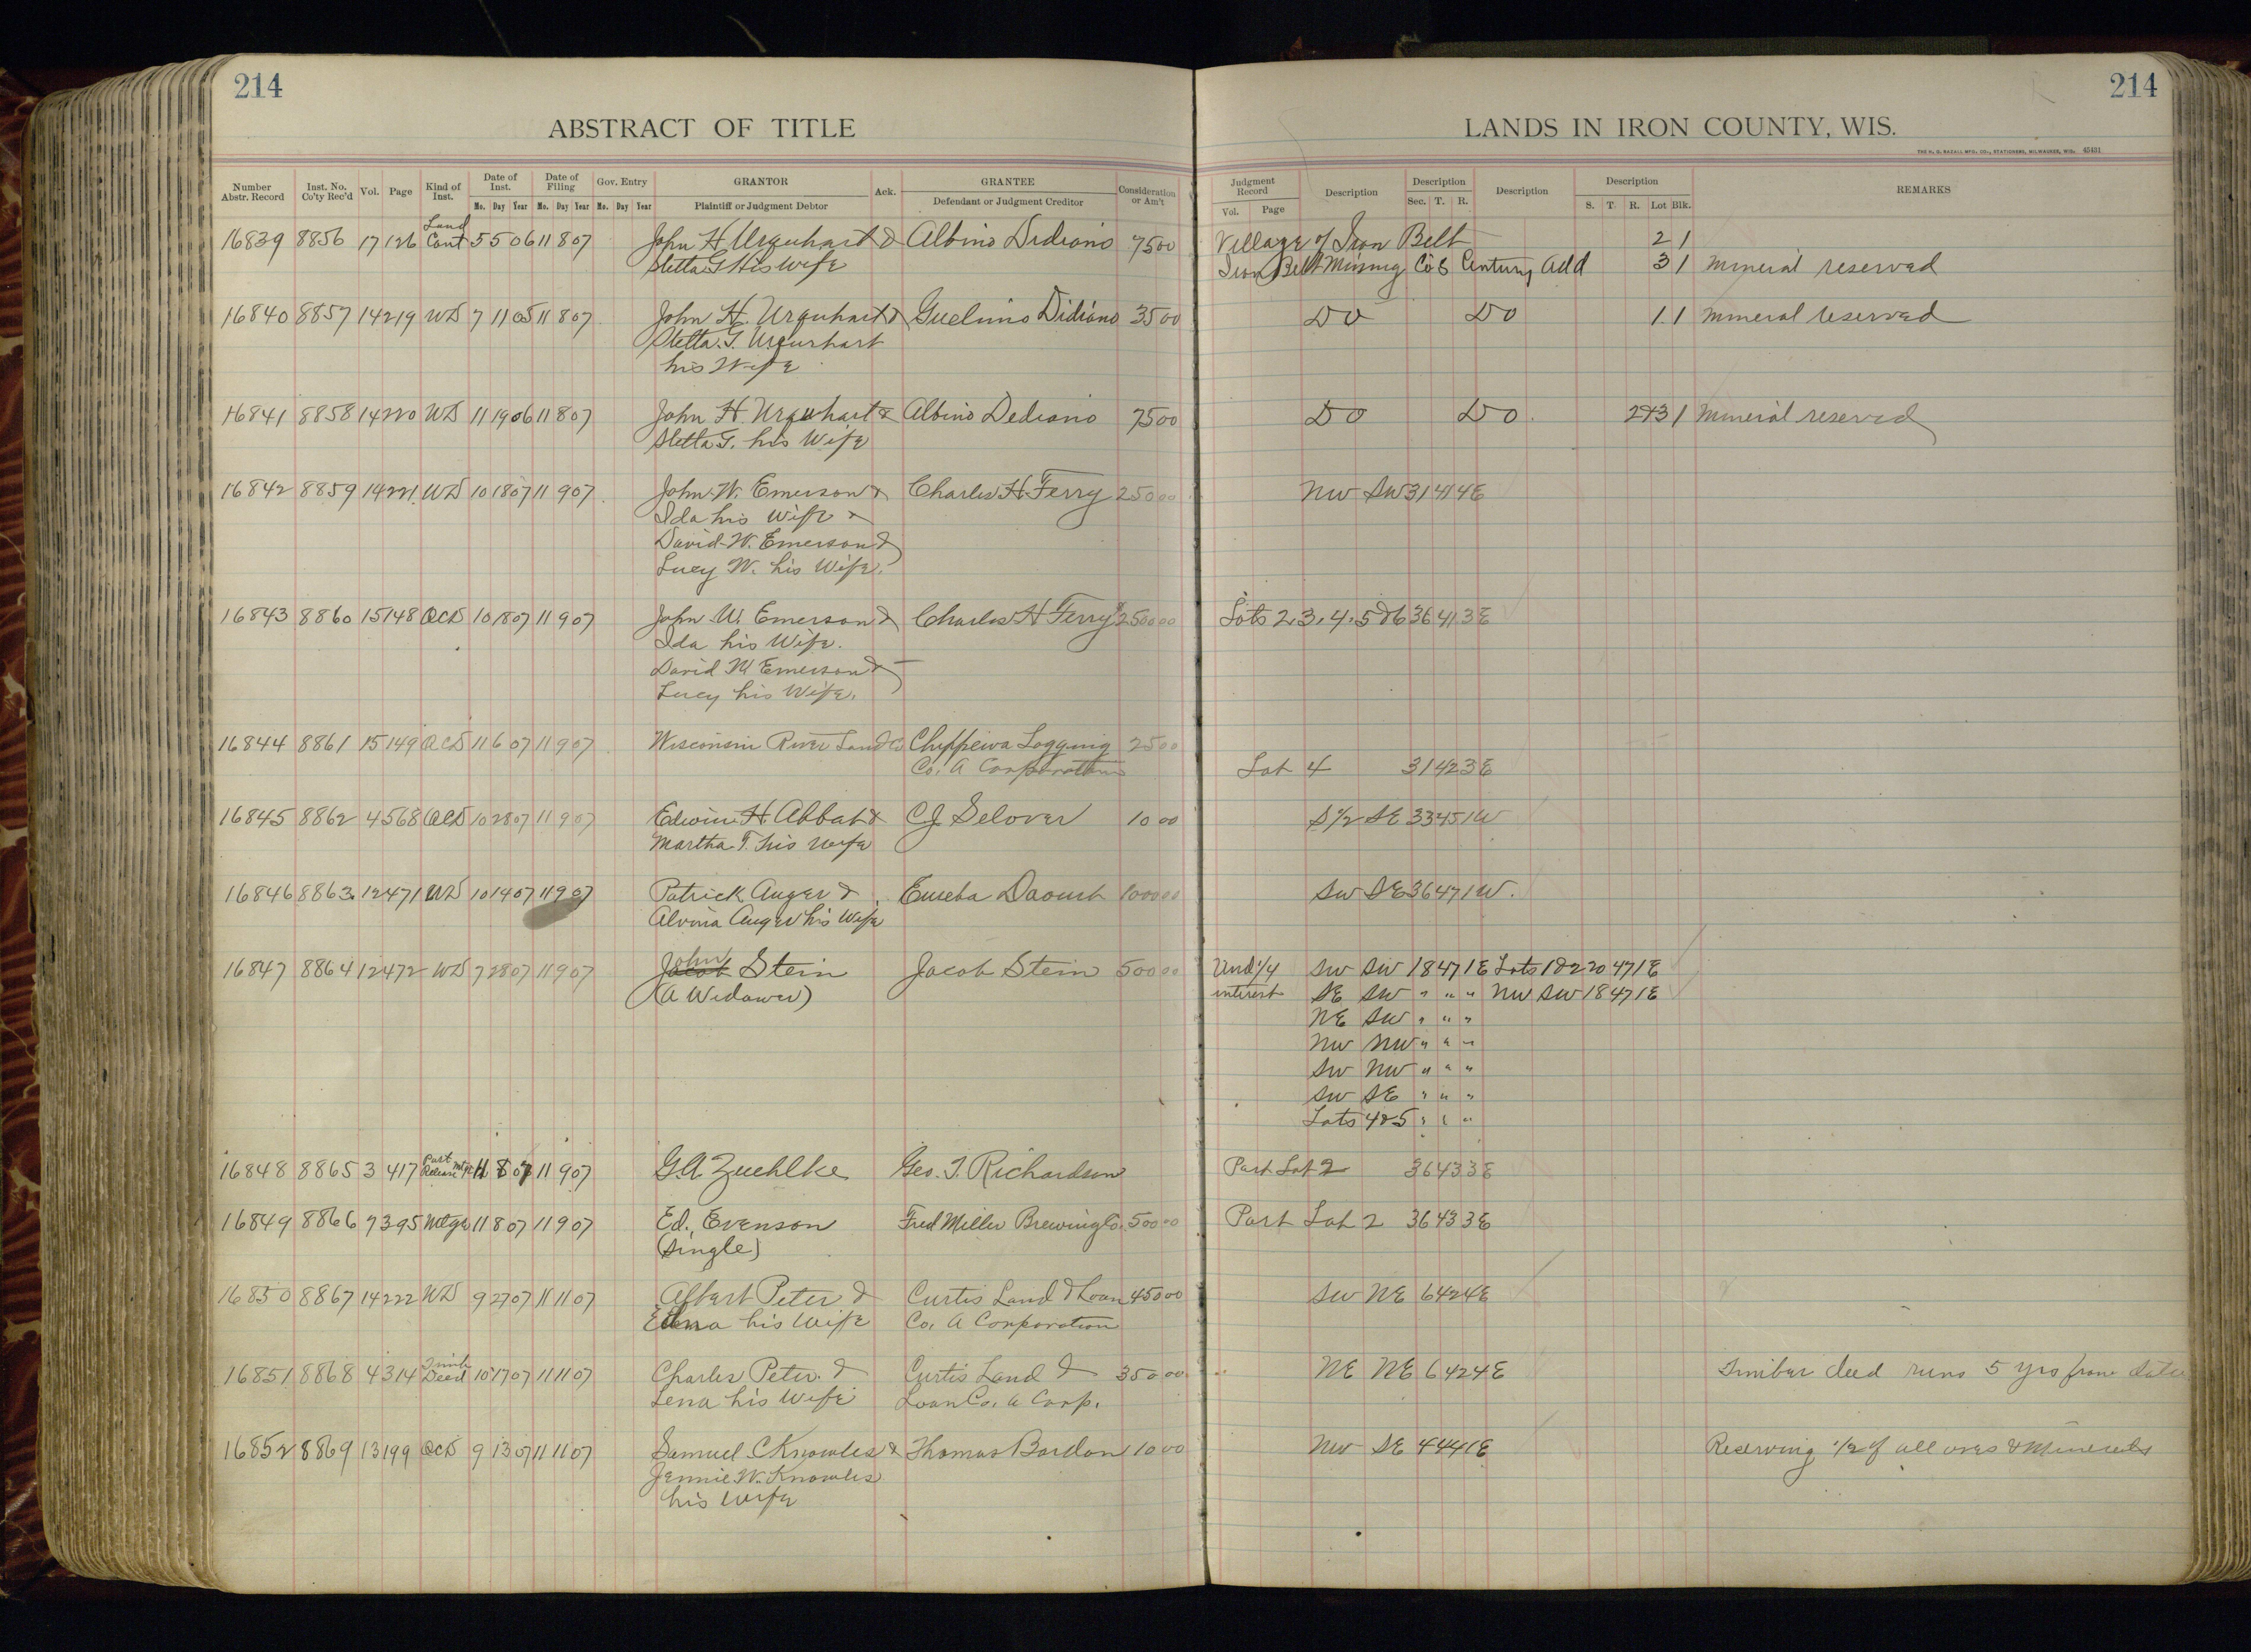 214
214
ABSTRACT OF TITLE
LANDS IN IRON COUNTY, WIS.
THE H. G. RAZALL MFG. CO., STATIONERS, MILWAUKEE, WIS. 45431
Number Abstr. Record Inst. No. Co'ty Rec'd Vol. Page Kind of Inst. Date of Inst. Mo. Day Year Date of Filing Mo. Day Year Gov. Entry Mo. Day Year GRANTOR Plaintiff or Judgment Debtor Ack. GRANTEE Defendant or Judgment Creditor Consideration or Am't
Judgment Record Vol. Page Description Description Sec. T. R. Description Description S. T. R. Lot Blk. REMARKS
16839 8856 17 126 Land Cont 5 5 06 11 8 07 John H Urquhart & Albino Didiano 75 00 Village of Iron Belt 2 1
Stella G His Wife Iron Belt Mining Co's Century Add 3 1 Mineral reserved
16840 8857 14 219 WD 7 11 05 11 8 07 John H. Urquhart & Guelimo Didiano 35 00 Do Do 1 1 Mineral reserved
Stella. G. Urquhart
his Wife
16841 8858 14 220 WD 11 19 06 11 8 07 John H. Urquhart & Albino Dediano 75 00 Do Do. 2&3 1 Mineral reserved
Stella G. his Wife
16842 8859 14 221 WD 10 18 07 11 9 07 John W. Emerson & Charles H. Ferry 250 00 NW SW 31 41 4E
Ida his Wife &
David W. Emerson &
Lucy W. his Wife.
16843 8860 15 148 QCD 10 18 07 11 9 07 John W. Emerson & Charles H Ferry 250 00 Lots 2.3.4.5&6 36 41 3E
Ida his Wife.
David W Emerson &
Lucy his Wife.
16844 8861 15 149 QCD 11 6 07 11 9 07 Wisconsin River Land Co Chippewa Logging 25 00
Co. A Corporation Lot 4 31 42 3E
16845 8862 4 568 QCD 10 28 07 11 9 07 Edwin H Abbat & C J Selover 10 00 S 1/2 SE 33 45 1W
Martha T. his Wife
16846 8863 12 471 WD 10 14 07 11 9 07 Patrick Auger & Euseba Daoust 1000 00 SW SE 36 47 1W.
Alvina Auger his Wife
16847 8864 12 472 WD 7 28 07 11 9 07 John Stein Jacob Stein 500 00 Und 1/4 SW SW 18 47 1E Lots 1&2 20 47 1E
(A Widower) interest SE SW " " " NW SW 18 47 1E
NE SW " " "
NW NW " " "
SW NW " " "
SW SE " " "
Lots 4&5 " " "
16848 8865 3 417 Part Release Mtge 11 8 07 11 9 07 G.A Zuehlke Geo. T. Richardson Part Lot 2 36 43 3E
16849 8866 7 395 Mtge 11 8 07 11 9 07 Ed. Evenson Fred Miller Brewing Co. 500 00 Part Lot 2 36 43 3E
(Single)
16850 8867 14 222 WD 9 27 07 11 11 07 Albert Peter & Curtis Land & Loan 450 00 SW NE 6 42 4E
his Wife Co. A Corporation
16851 8868 4 314 Timb Deed 10 17 07 11 11 07 Charles Peter & Curtis Land & 350 00 NE NE 6 42 4E Timber deed runs 5 yrs from date
Lena his Wife Loan Co. a Corp.
16852 8869 13 199 QCD 9 13 07 11 11 07 Samuel C Knowles & Thomas Bardon 10 00 NW SE 4 44 1E Reserving 1/2 of all ores & Minerals
Jennie W. Knowles
his Wife